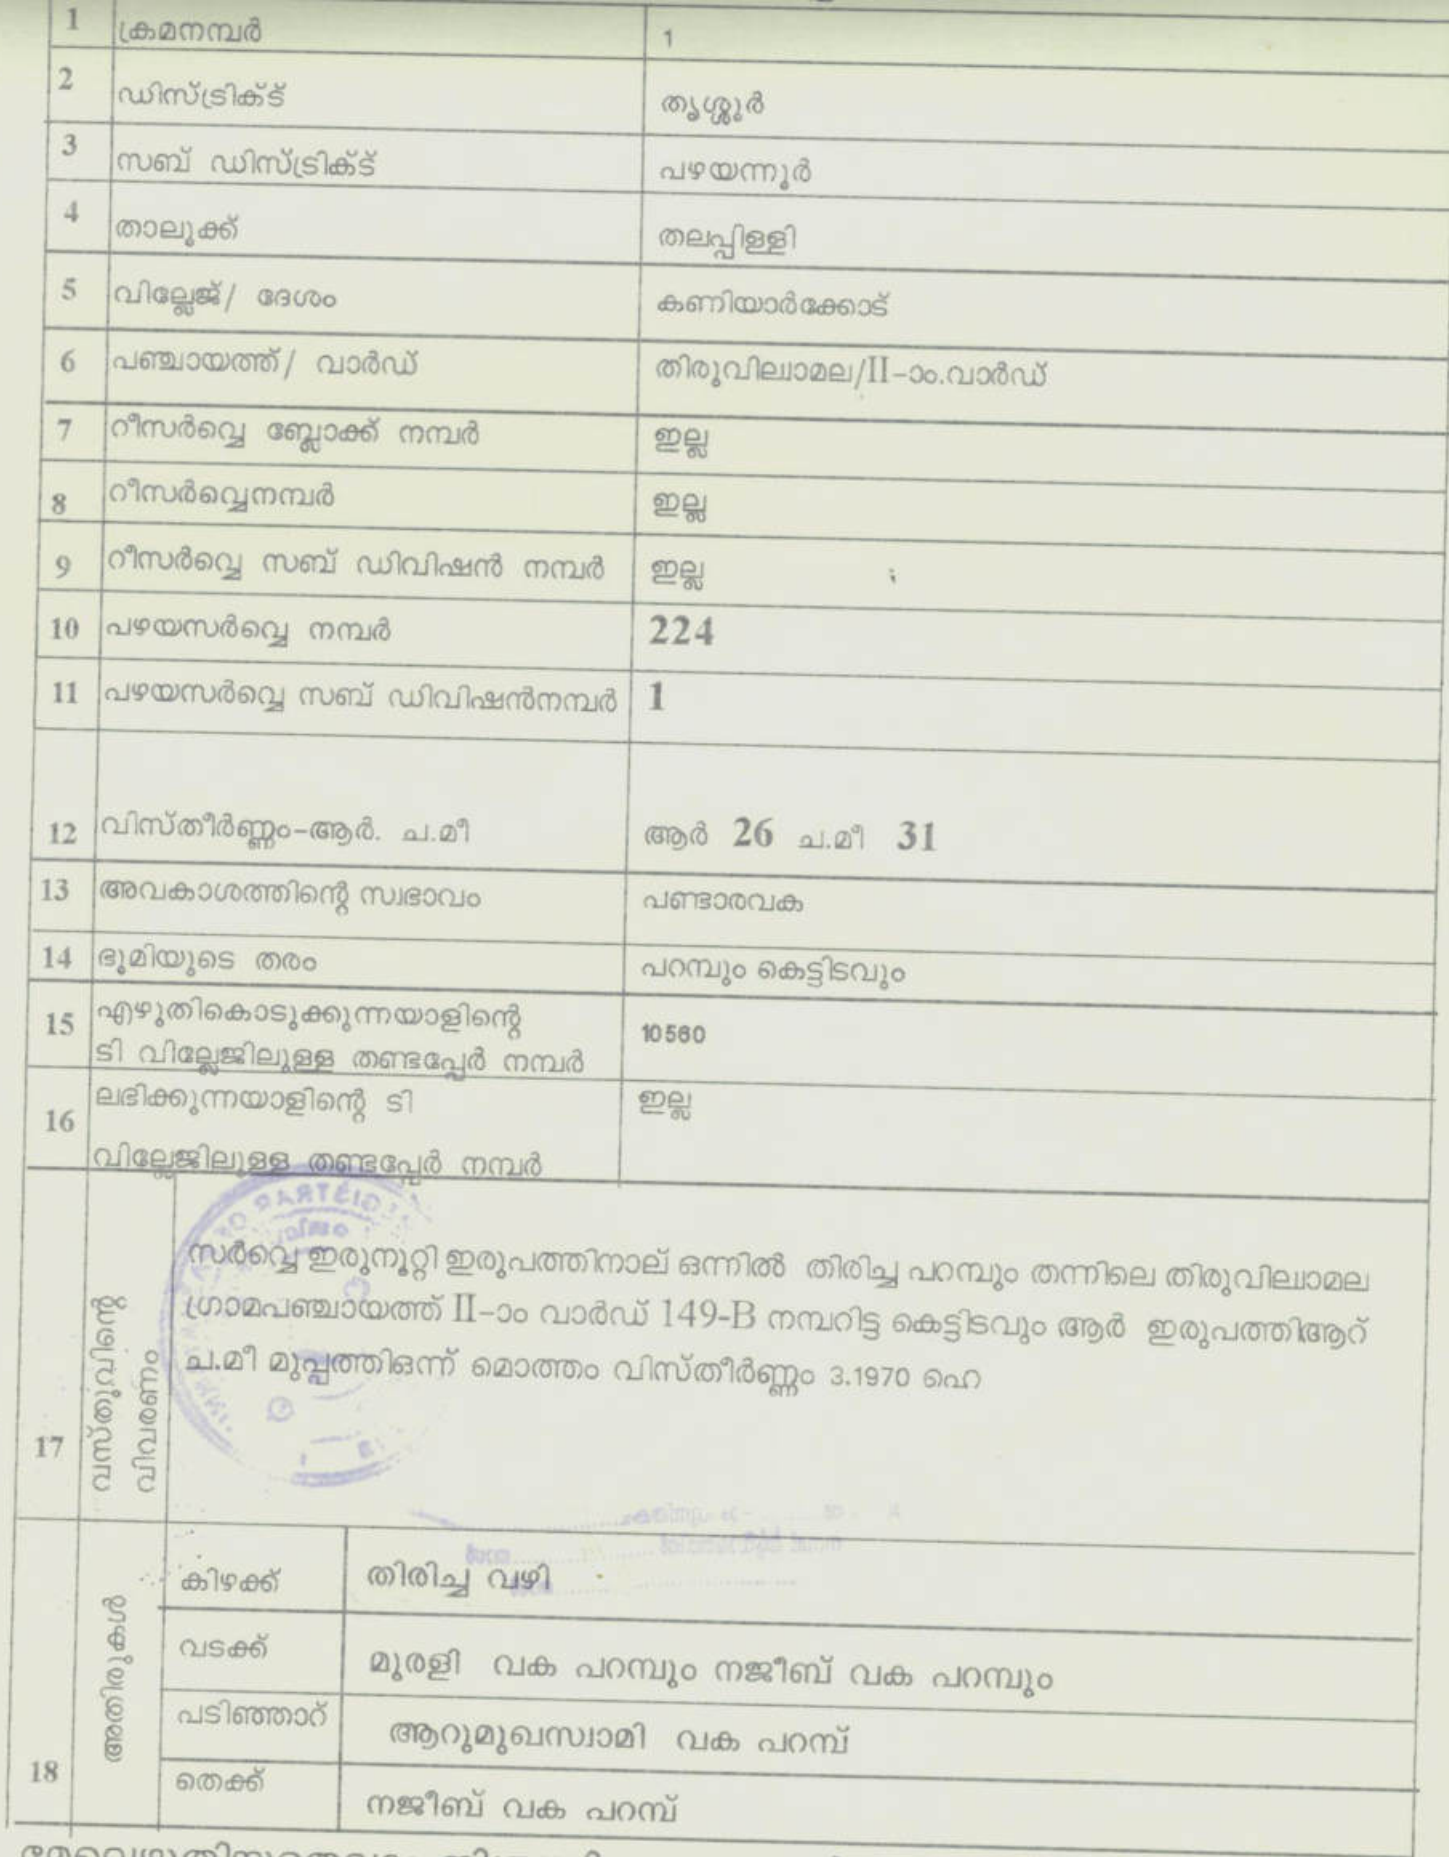 1 ക്രമനമ്പർ 1
2 ഡിസ്ട്രിക്ട് തൃശ്ശൂർ
3 സബ് ഡിസ്ട്രിക്ട് പഴയന്നൂർ
4 താലൂക്ക് തലപ്പിള്ളി
5 വില്ലേജ്/ ദേശം കണിയാർക്കോട്
6 പഞ്ചായത്ത്/ വാർഡ് തിരുവില്വാമല/II-ാം.വാർഡ്
7 റീസർവ്വെ ബ്ലോക്ക് നമ്പർ ഇല്ല
8 റീസർവ്വെനമ്പർ ഇല്ല
9 റീസർവ്വെ സബ് ഡിവിഷൻ നമ്പർ ഇല്ല
10 പഴയസർവ്വെ നമ്പർ 224
11 പഴയസർവ്വെ സബ് ഡിവിഷൻനമ്പർ 1
12 വിസ്തീർണ്ണം-ആർ. ച.മീ ആർ 26 ച.മീ 31
13 അവകാശത്തിന്റെ സ്വഭാവം പണ്ടാരവക
14 ഭൂമിയുടെ തരം പറമ്പും കെട്ടിടവും
15 എഴുതികൊടുക്കുന്നയാളിന്റെ 10560
ടി വില്ലേജിലുള്ള തണ്ടപ്പേർ നമ്പർ
16 ലഭിക്കുന്നയാളിന്റെ ടി ഇല്ല
വില്ലേജിലുള്ള തണ്ടപ്പേർ നമ്പർ
17 വസ്തുവിന്റെ
വിവരണം
സർവ്വെ ഇരുനൂറ്റി ഇരുപത്തിനാല് ഒന്നിൽ തിരിച്ച പറമ്പും തന്നിലെ തിരുവില്വാമല
ഗ്രാമപഞ്ചായത്ത് II-ാം വാർഡ് 149-B നമ്പറിട്ട കെട്ടിടവും ആർ ഇരുപത്തിആറ്
ച.മീ മുപ്പത്തിഒന്ന് മൊത്തം വിസ്തീർണ്ണം 3.1970 ഹെ
18 അതിരുകൾ
കിഴക്ക് തിരിച്ച വഴി
വടക്ക് മുരളി വക പറമ്പും നജീബ് വക പറമ്പും
പടിഞ്ഞാറ് ആറുമുഖസ്വാമി വക പറമ്പ്
തെക്ക് നജീബ് വക പറമ്പ്